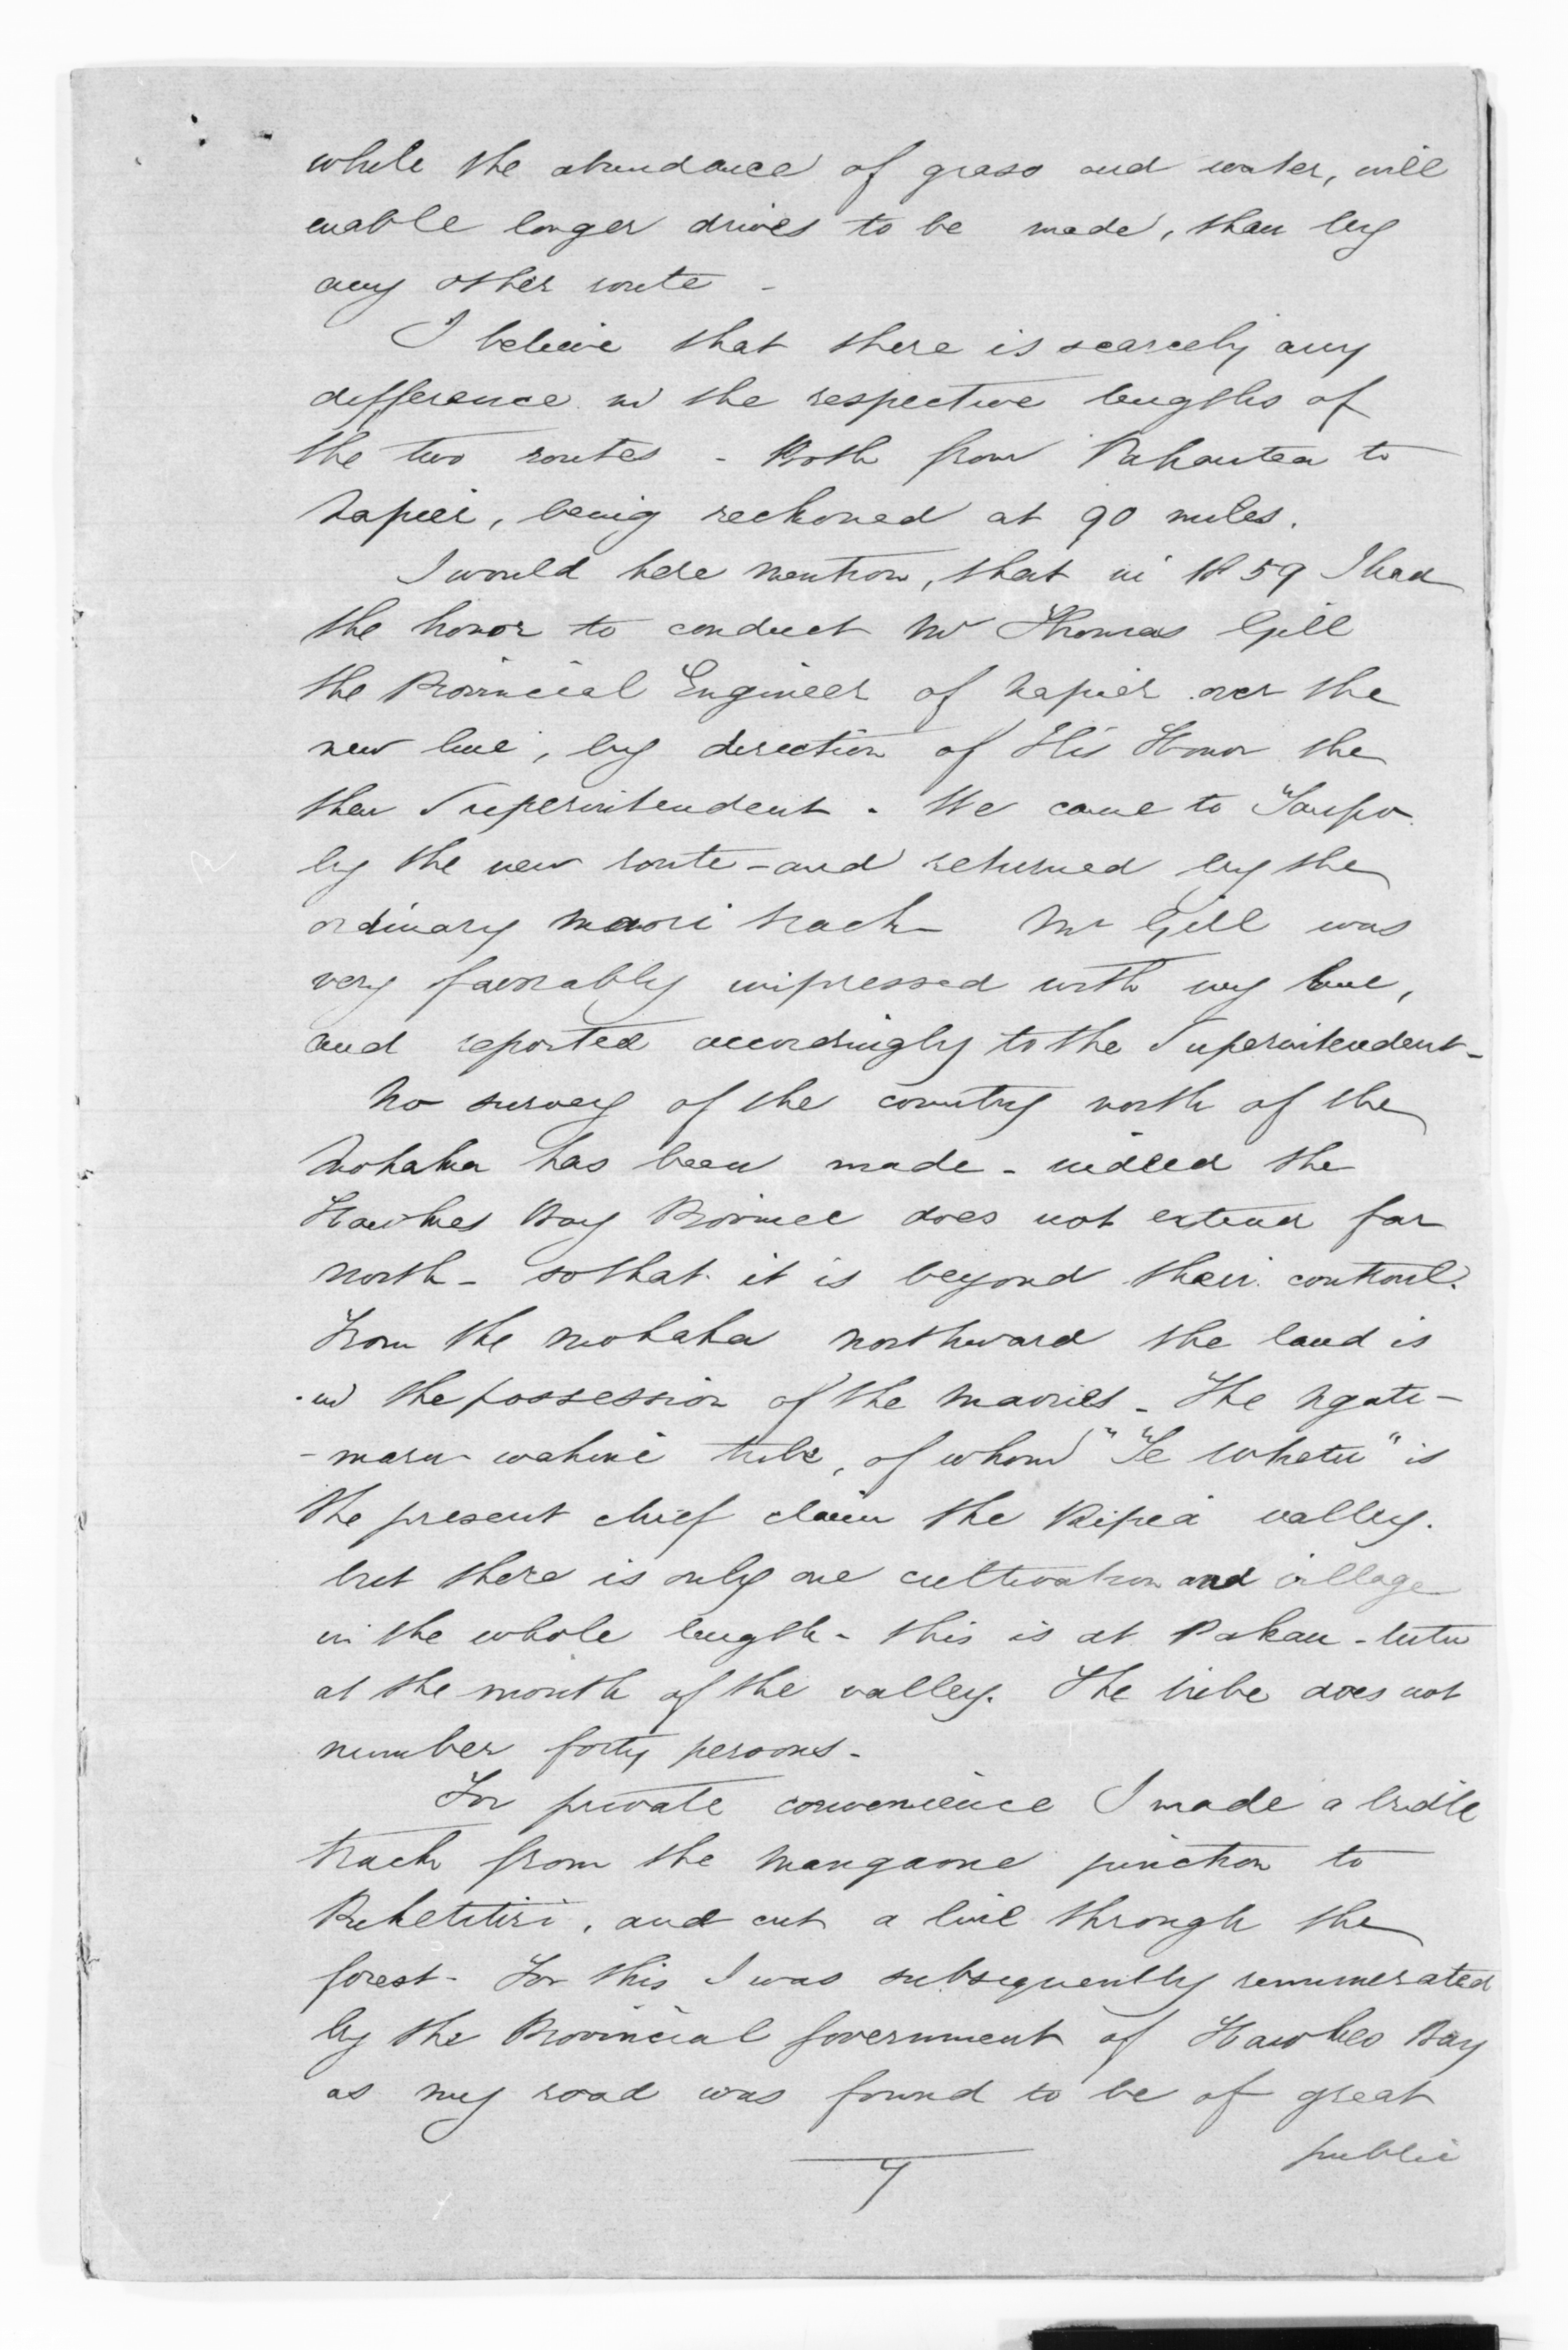 while the abundance of grass and water, will
enable longer drives to be made, than by
any other route -
I believe that there is scarcely any
difference in the respective lengths of
the two routes - Both from Pakautea to
Napier, being reckoned at 90 miles.
I would here mention, that in 1859 I had
the honor to conduct Mr Thomas Gill
the Provincial Engineer of Napier over the
new line, by direction of His Honor the
then Superintendent. We came to Taupo
by the new route - and returned by the
ordinary maori track - Mr Gill was
very favorably impressed with my line,
and reported accordingly to the Superintendent -
No survey of the country north of the
Mohaka has been made - indeed the
Hawkes Bay Province does not extend far
north - so that it is beyond their controul.
From the Mohaka northward the land is
in the possession of the maories - The Ngati -
- maru - wahine tribe, of whom "Te Whetu" is
the present chief claim the Ripia valley.
but there is only one cultivation and village
in the whole length - this is at Pakau - tutu
at the mouth of the valley. The tribe does not
number forty persons -
For private convenience I made a bridle
track from the Mangaone junction to
Puketitiri, and cut a line through the
forest - For this I was subsequently renumerated
by the Provincial Government of Hawkes Bay
as my road was found to be of great
public
7